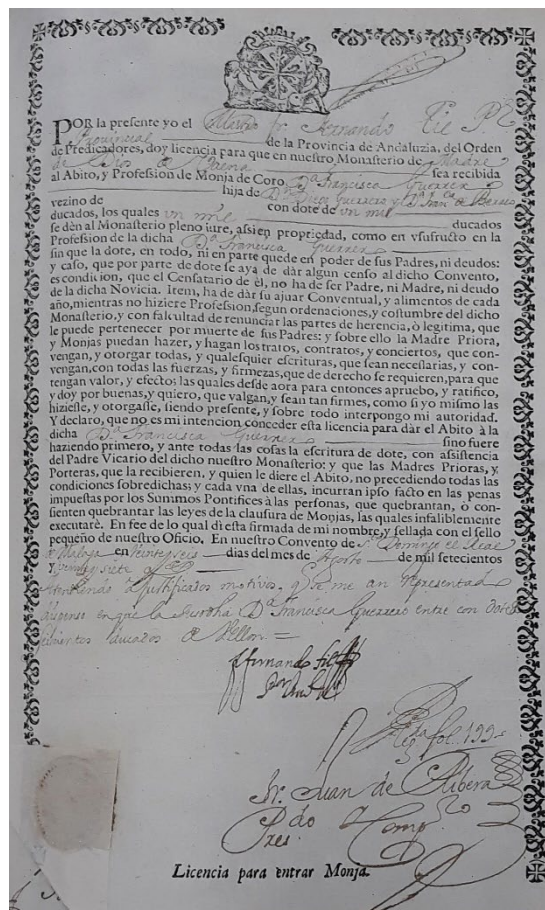 POR la presente yo el Maestro fr. Fernando
Provincial de la Provincia de Andaluzia, del Orden
de Predicadores, doy licencia para que en nuestro Monasterio de Madre
de Dios de Baena sea recibida
al Abito, y Profession de Monja de Coro D.ª Francisca Guerrero
hija de
vezino de con dote de vn mil
ducados, los quales vn mil ducados
se dèn al Monasterio pleno iure, assi en propriedad, como en vsufructo en la
Profession de la dicha D.ª Francisca Guerrero
sin que la dote, en todo, ni en parte quede en poder de sus Padres, ni deudos:
y caso, que por parte de dote se aya de dàr algun censo al dicho Convento,
es condicion, que el Censatario de èl, no ha de ser Padre, ni Madre, ni deudo
de la dicha Novicia. Iten, ha de dàr su ajuar Conventual, y alimentos de cada
año, mientras no hiziere Profession, segun ordenaciones, y costumbre del dicho
Monasterio, y con facultad de renunciar las partes de herencia, ò legitima, que
le puede pertenecer por muerte de sus Padres: y sobre ello la Madre Priora,
y Monjas puedan hazer, y hagan los tratos, contratos, y conciertos, que con-
vengan, y otorgar todas, y qualesquier escrituras, que sean necessarias, y con-
vengan, con todas las fuerzas, y firmezas, que de derecho se requieren, para que
tengan valor, y efecto; las quales desde aora para entonces apruebo, y ratifico,
y doy por buenas, y quiero, que valgan, y sean tan firmes, como si yo mismo las
hiziesse, y otorgasse, siendo presente, y sobre todo interpongo mi autoridad.
Y declaro, que no es mi intencion conceder esta licencia para dàr el Abito à la
dicha D.ª Francisca Guerrero sino fuere
haziendo primero, y ante todas las cosas la escritura de dote, con assistencia
del Padre Vicario del dicho nuestro Monasterio: y que las Madres Prioras, y
Porteras, que la recibieren, y quien le diere el Abito, no precediendo todas las
condiciones sobredichas; y cada vna de ellas, incurran ipso facto en las penas
impuestas por los Summos Pontifices à las personas, que quebrantan, ò con-
sienten quebrantar las leyes de la clausura de Monjas, las quales infaliblemente
executarè. En fee de lo qual dì esta firmada de mi nombre, y sellada con el sello
pequeño de nuestro Oficio. En nuestro Convento de S. Domingo el Real
de Malaga en veinte y seis dias del mes de Agosto de mil setecientos
y veinte y siete
Atendiendo a justificados motivos, que me an representado
en que la susodha D.ª Francisca Guerrero entre con
ducados de Vellon =
fol. 199
Fr. Juan de Ribera
Pres.do y Comp.ro
Licencia para entrar Monja.